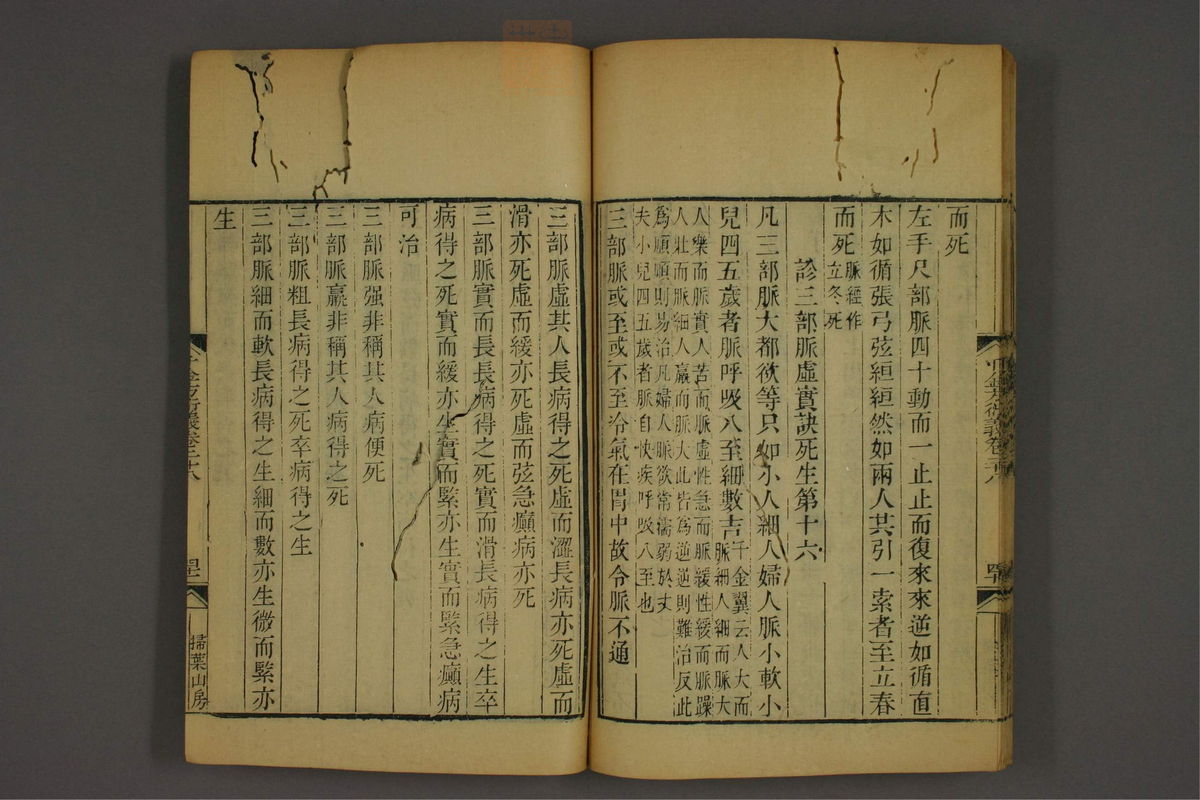 而死
左手尺部脈四十動而一止止而復來來逆如循直
木如循張弓弦絙絙然如兩人共引一索者至立春
而死脈經作立冬死
診三部脈虛實訣死生第十六
凡三部脈大都欲等只如小人細人婦人脈小軟小
兒四五歲者脈呼吸八至細數吉千金翼云人大而脈細人細而脈大
人樂而脈實人苦而脈虛性急而脈緩性緩而脈躁
人壯而脈細人羸而脈大此皆爲逆逆則難治反此
爲順順則易治凡婦人脈欲常濡弱於丈
夫小兒四五歲者脈自快疾呼吸八至也
三部脈或至或不至冷氣在胃中故令脈不通
三部脈虛其人長病得之死虛而澀長病亦死虛而
滑亦死虛而緩亦死虛而弦急癲病亦死
三部脈實而長長病得之死實而滑長病得之生卒
病得之死實而緩亦生實而緊亦生實而緊急癲病
可治
三部脈强非稱其人病便死
三部脈羸非稱其人病得之死
三部脈粗長病得之死卒病得之生
三部脈細而軟長病得之生細而數亦生微而緊亦
生
千金方衍義卷二十八
掃葉山房